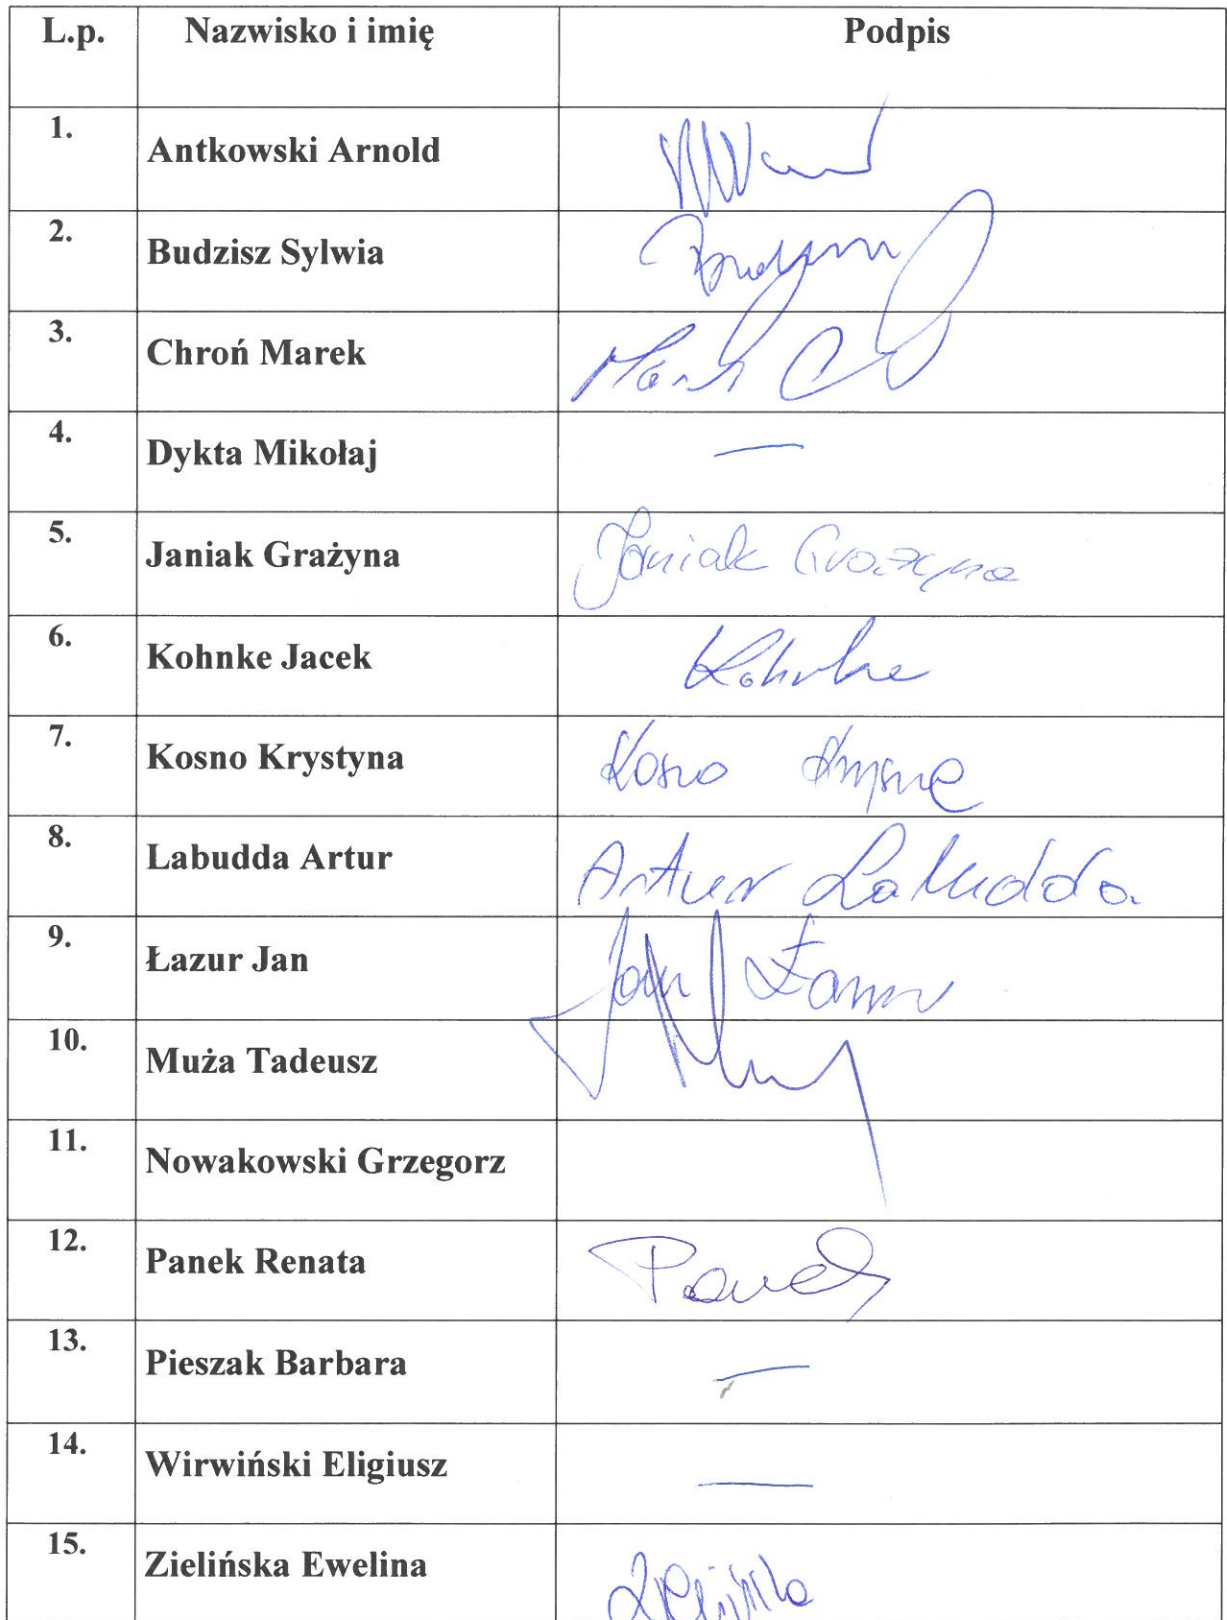 L.p. Nazwisko i imię Podpis
1. Antkowski Arnold
2. Budzisz Sylwia
3. Chroń Marek Marek
4. Dykta Mikołaj —
5. Janiak Grażyna Janiak Grażyna
6. Kohnke Jacek Kohnke
7. Kosno Krystyna Kosno
8. Labudda Artur Artur Labudda
9. Łazur Jan Jan Łazur
10. Muża Tadeusz
11. Nowakowski Grzegorz
12. Panek Renata Panek
13. Pieszak Barbara —
14. Wirwiński Eligiusz —
15. Zielińska Ewelina Zielińska